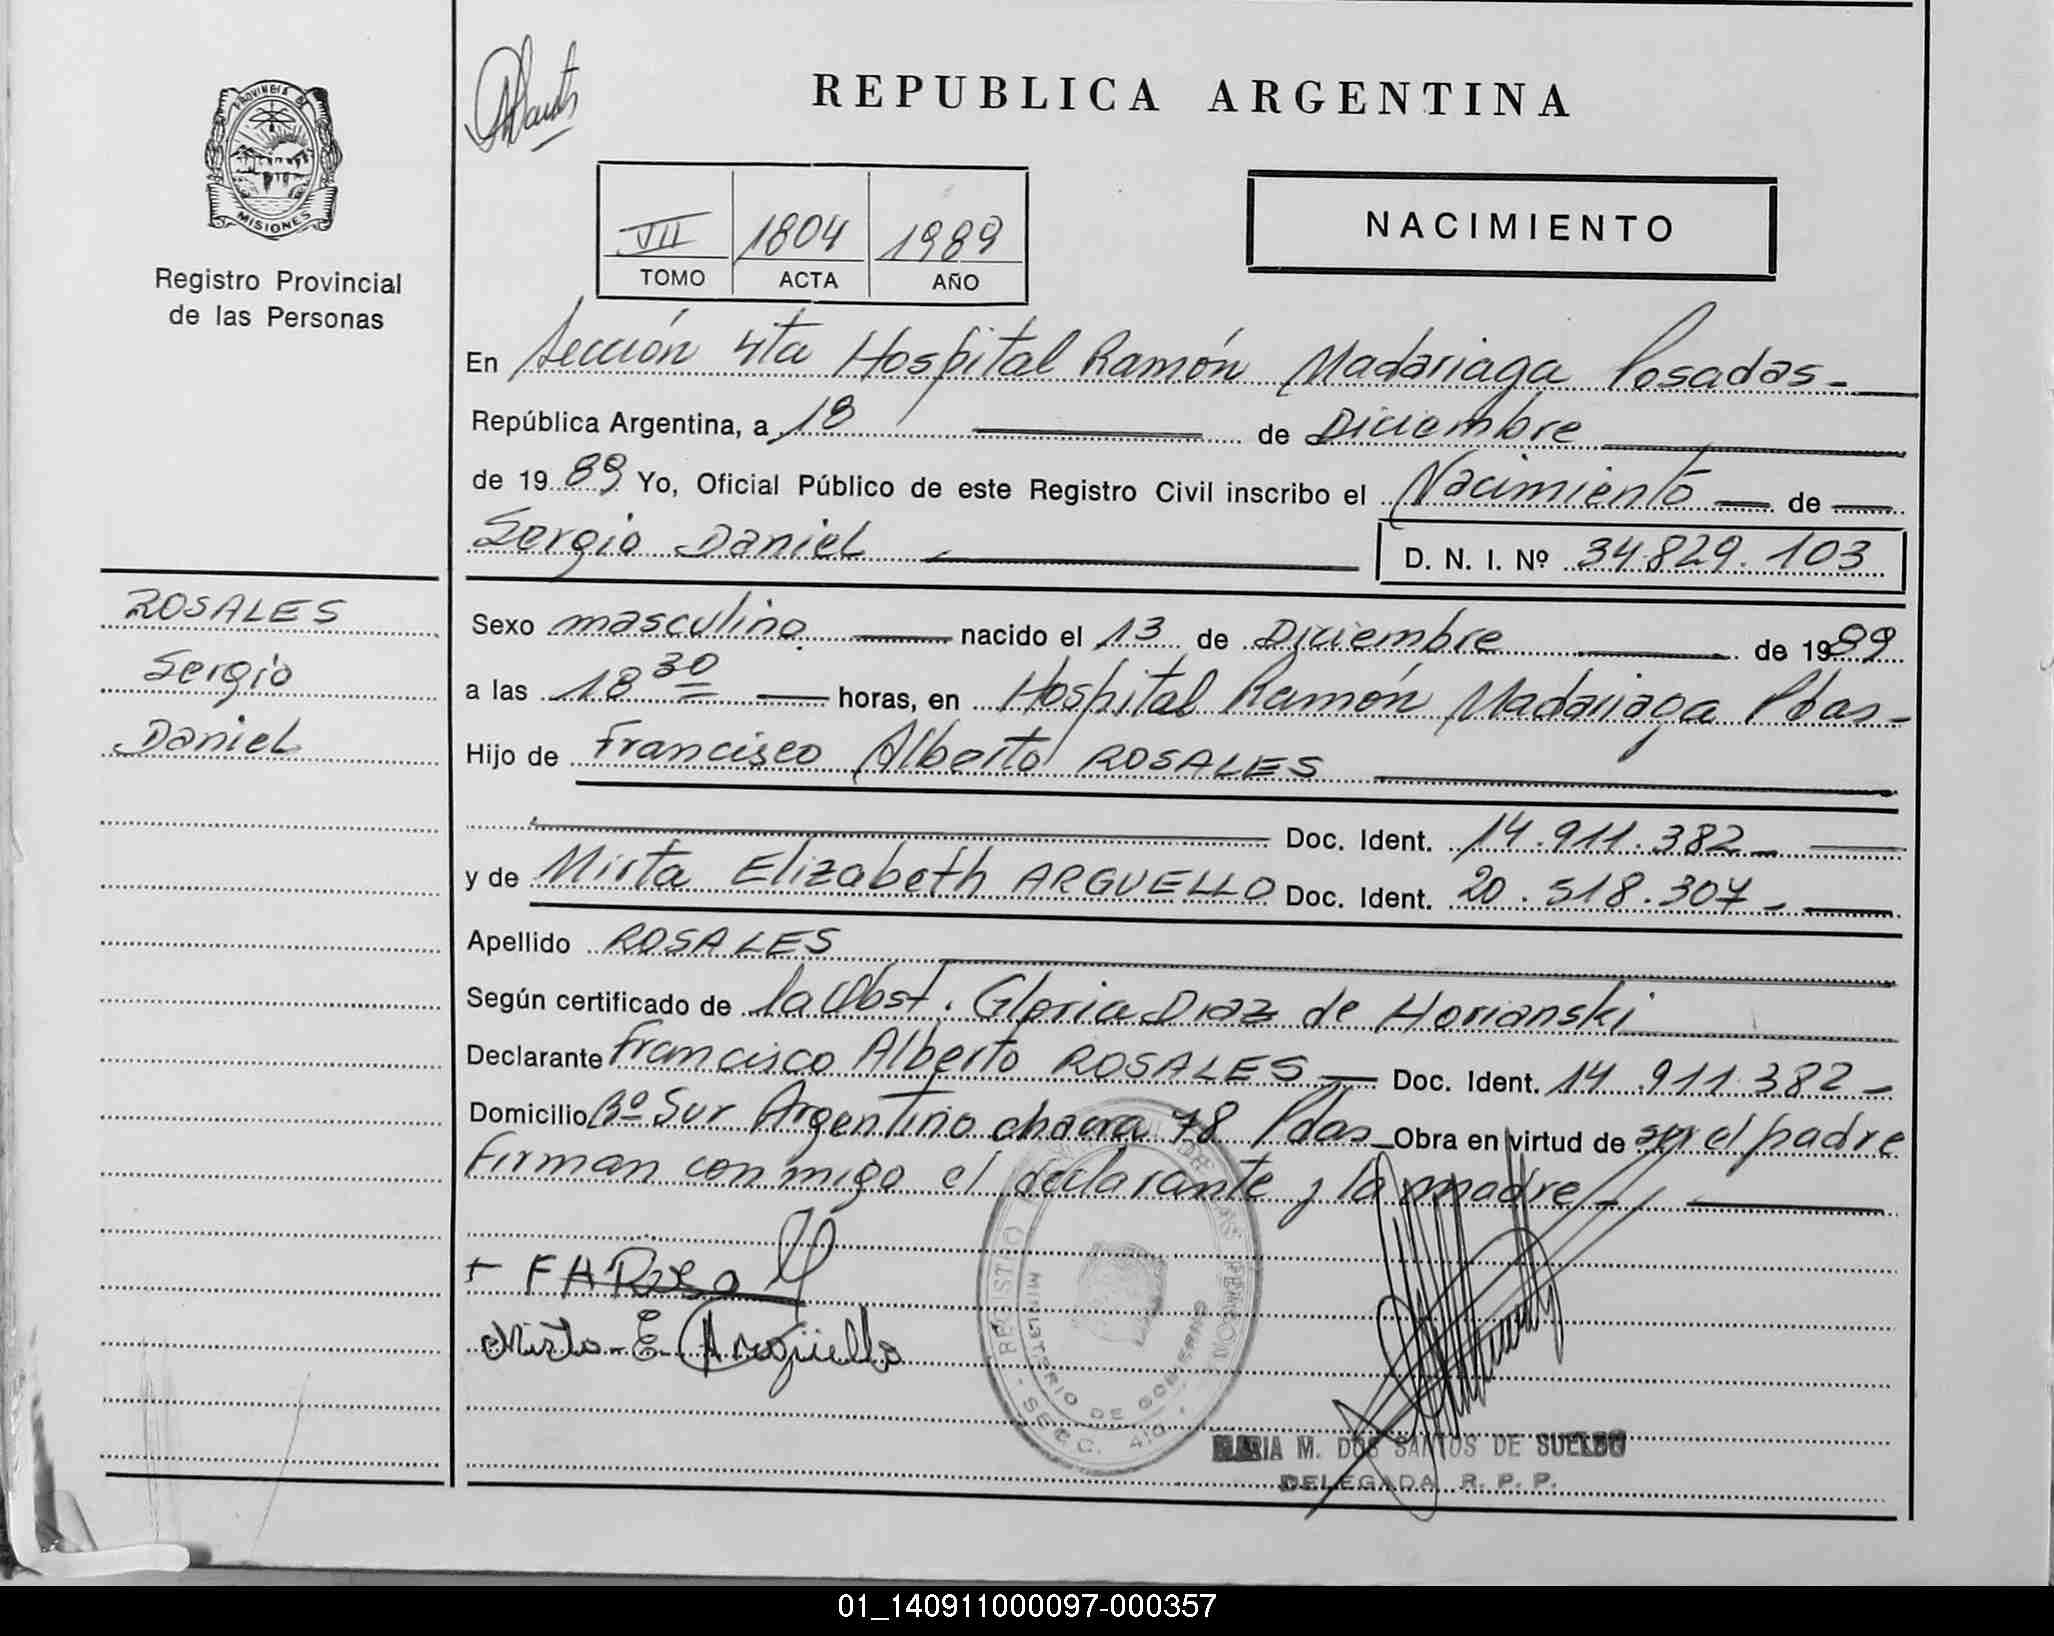 REPUBLICA ARGENTINA
PROVINCIA DE
MISIONES
Registro Provincial
de las Personas
VII 1804 1989
TOMO ACTA AÑO
NACIMIENTO
En Sección 4ta Hospital Ramón Madariaga Posadas-
República Argentina, a 18 de Diciembre
de 1989 Yo, Oficial Público de este Registro Civil inscribo el Nacimiento de
Sergio Daniel
D. N. I. Nº 34.829.103
ROSALES
Sergio
Daniel
Sexo masculino. nacido el 13 de Diciembre de 1989
a las 18 30 horas, en Hospital Ramón Madariaga Pdas-
Hijo de Francisco Alberto ROSALES
Doc. Ident. 14.911.382-
y de Mirta Elizabeth ARGUELLO Doc. Ident. 20.518.307-
Apellido ROSALES
Según certificado de la Obst. Gloria Diaz de Horianski
Declarante Francisco Alberto ROSALES- Doc. Ident. 14.911.382-
Domicilio Bº Sur Argentino chacra 78 Pdas- Obra en virtud de ser el padre
Firman conmigo el declarante y la madre-
+ FARosa
Mirta E. Argüello
REGISTRO DE LAS PERSONAS
MINISTERIO DE GOBIERNO
- SECC. 4ta -
MARIA M. DOS SANTOS DE SUELDO
DELEGADA R. P. P.
01_140911000097-000357